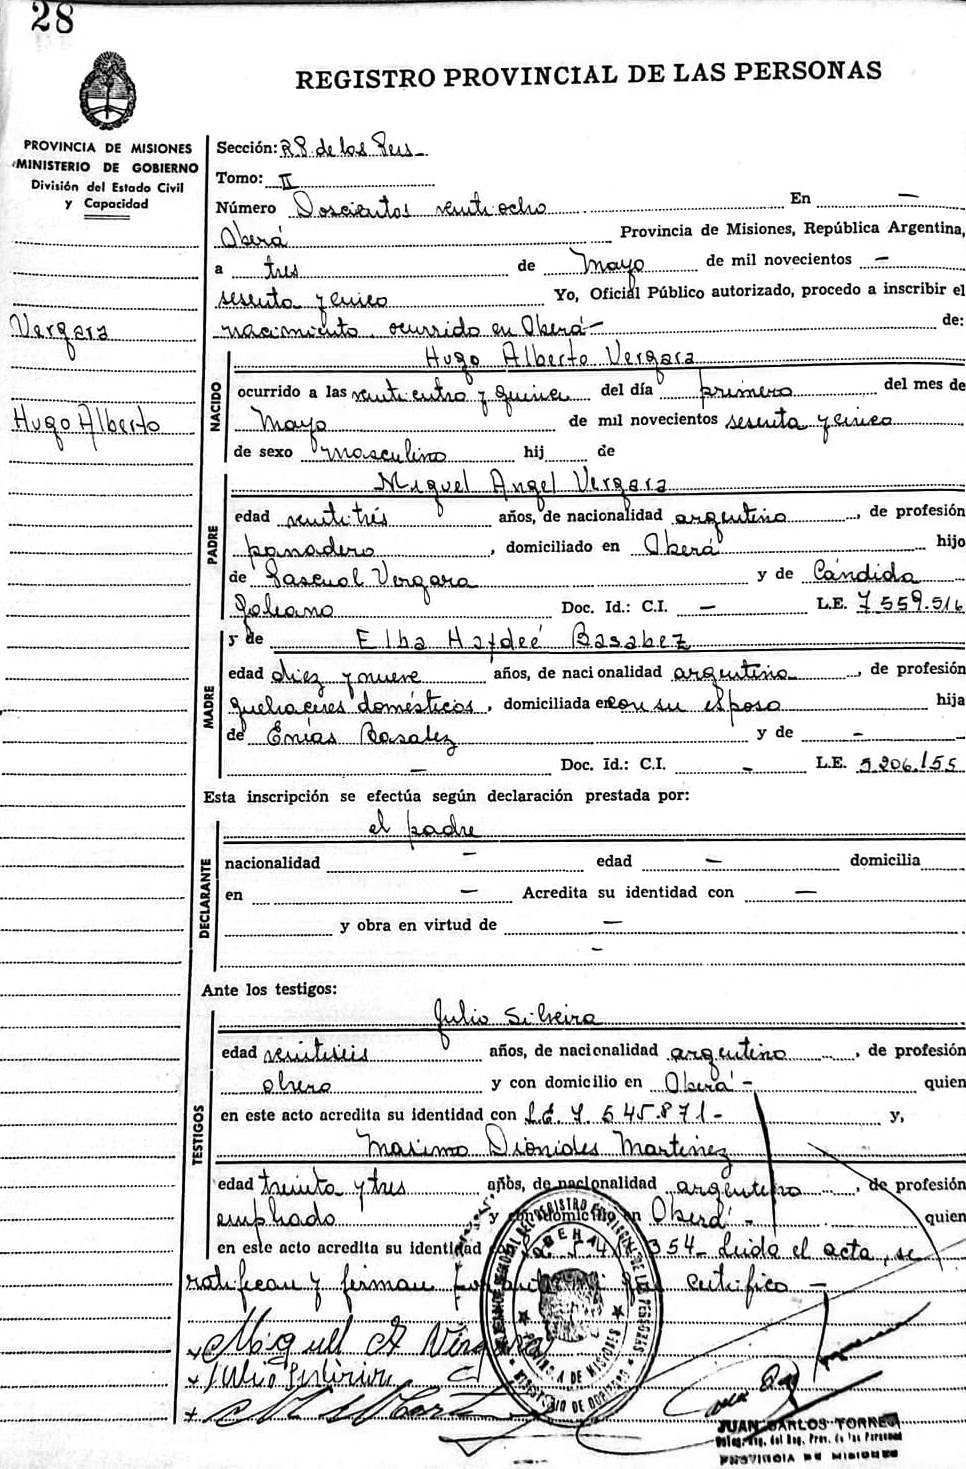 28
REGISTRO PROVINCIAL DE LAS PERSONAS
PROVINCIA DE MISIONES
MINISTERIO DE GOBIERNO
División del Estado Civil
y Capacidad
Vergara
Hugo Alberto
Sección: R.P. de las Pers
Tomo: II
Número Doscientos veintiocho En —
Oberá Provincia de Misiones, República Argentina,
a tres de Mayo de mil novecientos —
sesenta y cinco Yo, Oficial Público autorizado, procedo a inscribir el
nacimiento ocurrido en Oberá — de:
NACIDO
Hugo Alberto Vergara
ocurrido a las veinticuatro y quince del día primero del mes de
Mayo de mil novecientos sesenta y cinco
de sexo masculino hij de
PADRE
Miguel Angel Vergara
edad veintitrés años, de nacionalidad argentino, de profesión
panadero, domiciliado en Oberá hijo
de Pascual Vergara y de Cándida
Doc. Id.: C.I. — L.E. 7.559.516
MADRE
y de Elba Haydeé Basabez
edad diez y nueve años, de nacionalidad argentina, de profesión
quehaceres domésticos, domiciliada en con su esposo hija
de Enías Basabez y de —
— Doc. Id.: C.I. — L.E. 5.206.155
Esta inscripción se efectúa según declaración prestada por:
DECLARANTE
el padre
nacionalidad — edad — domicilia
en — Acredita su identidad con —
y obra en virtud de —
—
Ante los testigos:
TESTIGOS
Julio Silveira
edad veintiseis años, de nacionalidad argentino, de profesión
obrero y con domicilio en Oberá - quien
en este acto acredita su identidad con L.E. 7.545.871 - y,
Maximo Dionides Martinez
edad treinta y tres años, de nacionalidad argentino, de profesión
empleado y con domicilio en Oberá - quien
en este acto acredita su identidad 354- Leida el acta, se
ratifican y firman certifico —
Miguel A Vergara
JUAN CARLOS TORRES
Deleg. Reg. del Reg. Prov. de las Personas
PROVINCIA DE MISIONES
OBERA
PROVINCIA DE MISIONES
MINISTERIO DE GOBIERNO